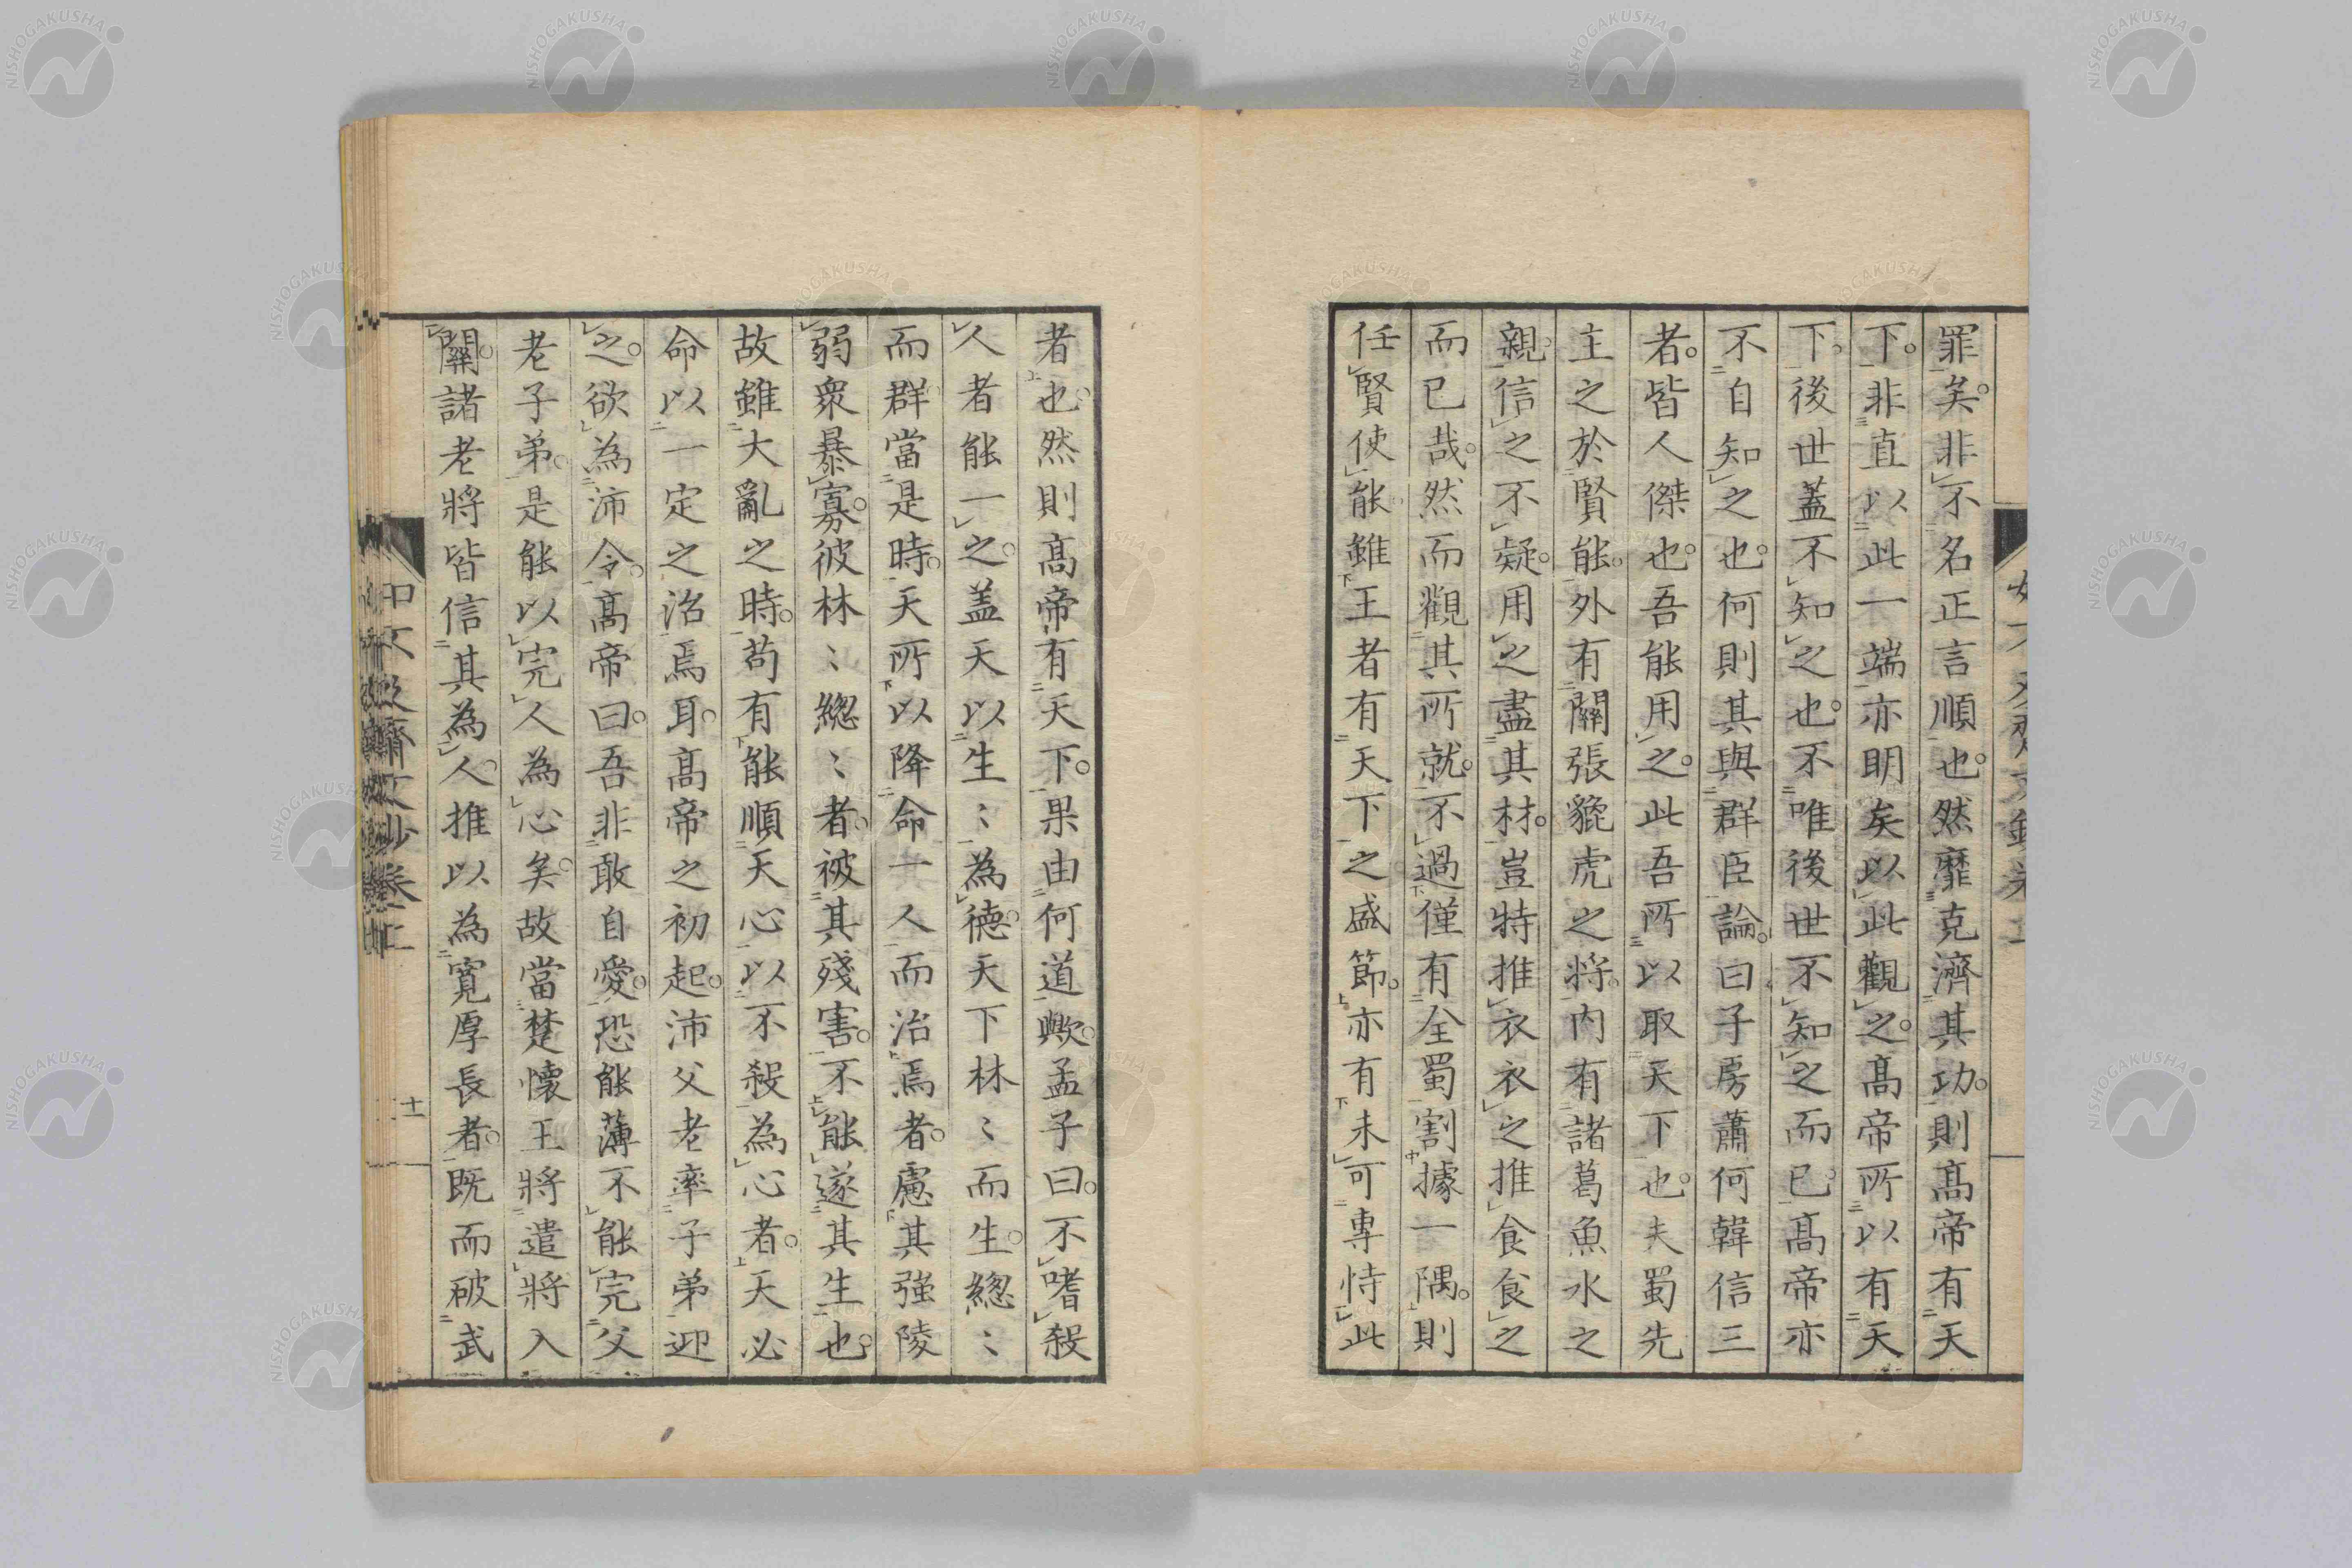 罪矣。非不名正言順也。然靡克濟其功。則髙帝有天
下。非直以此一端亦明矣以此觀之。髙帝所以有天
下。後世蓋不知之也。不唯後世不知之而已。髙帝亦
不自知之也。何則其與群臣論。曰子房蕭何韓信三
者。皆人傑也。吾能用之。此吾所以取天下也。夫蜀先
主之於賢能。外有關張貔虎之將。内有諸葛魚水之
親。信之不疑。用之盡其材。豈特推衣衣之推食食之
而已哉。然而觀其所就。不過僅有全蜀割據一隅。則
任賢使能雖王者有天下之盛節。亦有未可專恃此
者也。然則髙帝有天下。果由何道歟。孟子曰。不嗜殺
人者能一之。盖天以生〻為德。天下林〻而生。緫〻
而群。當是時。天所以降命一人而治焉者。慮其强陵
弱衆暴寡。彼林〻緫〻者。被其殘害。不能遂其生也。
故雖大亂之時。苟有能順天心以不殺為心者。天必
命以一定之治焉耳。髙帝之初起。沛父老率子弟迎
之。欲為沛令。髙帝曰。吾非敢自愛。恐能薄不能完父
老子弟。是能以完人為心矣。故當楚懷王將遣將入
關。諸老將皆信其為人。推以為寛厚長者。既而破武
十一
NISHOGAKUSHA